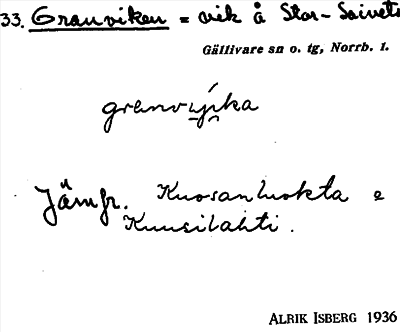 33. Granviken = vik å Stor-Soivets
Gällivare sn o. tg, Norrb. l.
granvyika
Jämfr. Kuosanluokta o
Kuusilahti.
ALRIK ISBERG 1936